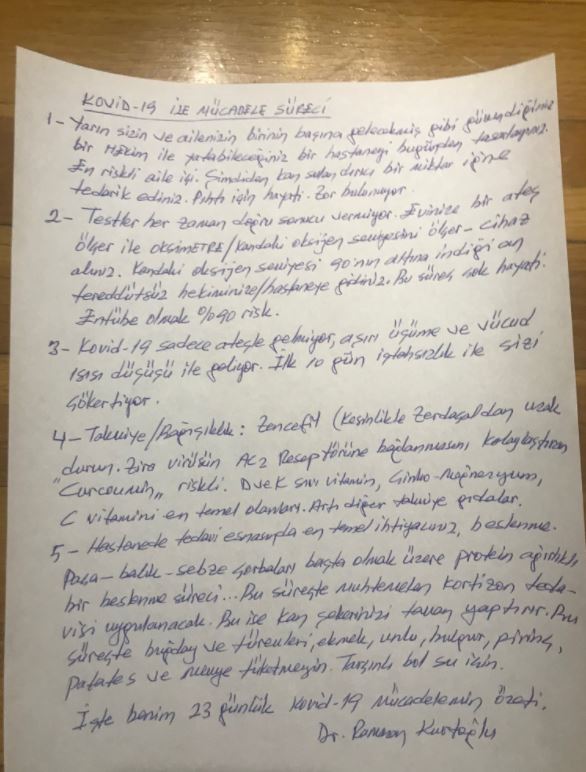 KOVİD-19 İLE MÜCADELE SÜRECİ
1- Yarın sizin ve ailenizin birinin başına gelecekmiş gibi güvendiğiniz
bir Hekim ile yatabileceğiniz bir hastaneyi bugünden tasarlayınız.
En riskli aile içi. Şimdiden kan sulandırıcı bir miktar iğne
tedarik ediniz. Pıhtı için hayati. Zor bulunuyor.
2- Testler her zaman doğru sonucu vermiyor. Evinize bir ateş
ölçer ile OKSİMETRE/Kandaki oksijen seviyesini ölçer - cihaz
alınız. Kandaki oksijen seviyesi 90'nın altına indiği an
tereddütsüz hekiminize/hastaneye gidiniz. Bu süreç çok hayati.
Entübe olmak %90 risk.
3- Kovid-19 sadece ateşle gelmiyor, aşırı üşüme ve vücud
ısısı düşüşü ile geliyor. İlk 10 gün iştahsızlık ile sizi
çökertiyor.
4- Takviye/Bağışıklık: Zencefil (Kesinlikle Zerdaçaldan uzak
durun. Zira virüsün AC2 Reseptörüne bağlanmasını kolaylaştıran
"Curcoumin" riskli. D ve K sıvı vitamin, Ginko-Magnezyum,
C vitamini en temel olanları. Artı diğer takviye gıdalar.
5- Hastanede tedavi esnasında en temel ihtiyacınız, beslenme.
Paça-balık-sebze çorbaları başta olmak üzere protein ağırlıklı
bir beslenme süreci... Bu süreçte muhtemelen kortizon teda-
visi uygulanacak. Bu ise kan şekerinizi tavan yaptırır. Bu
süreçte buğday ve türevleri, ekmek, unlu, bulgur, pirinç,
patates ve meyve tüketmeyin. Tarçınlı bol su için.
İşte benim 23 günlük Kovid-19 mücadelemin özeti.
Dr. Ramazan Kurtoğlu